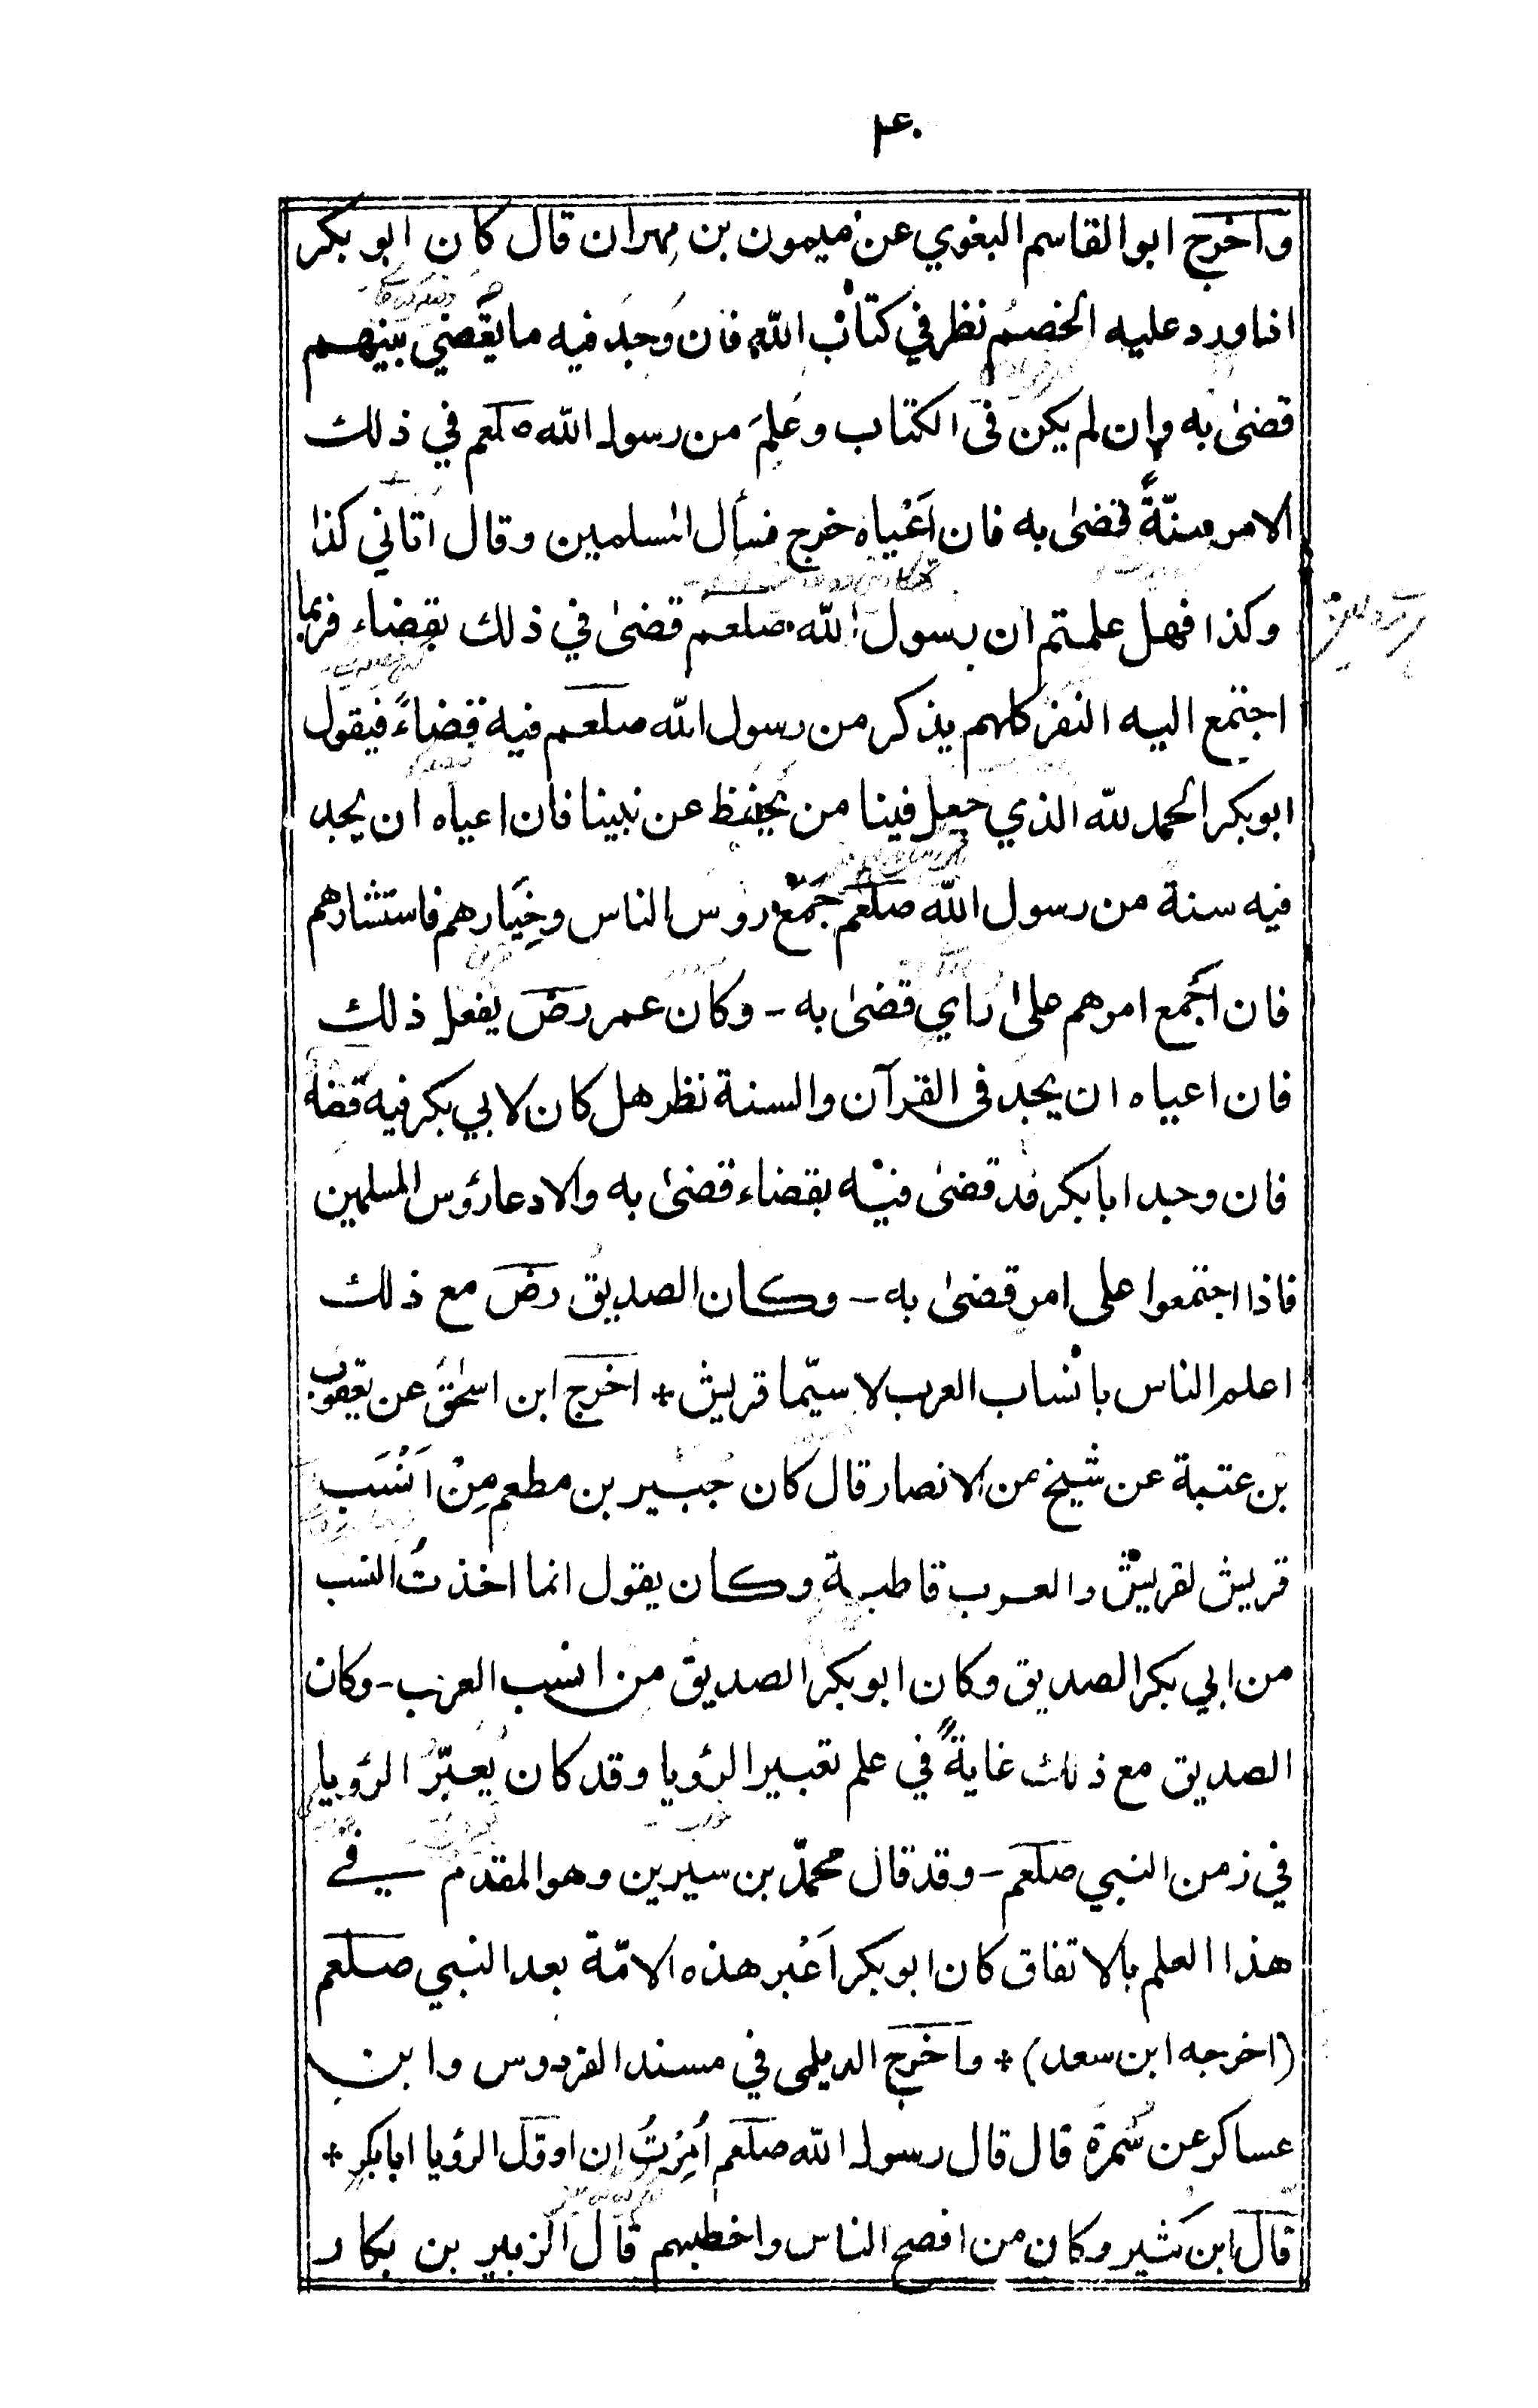 ۴۰
وٓاخرج ابو القاسم البغوي عن ميمون بن مِهران قال كان ابو بكر
اذا ورد عليه الخصمُ نظر في كتاب الله فان وَجَد فيه ما يقضي بينهم
قضىٰ به وان لم يكن فى الكتاب وعَلِمَ من رسول الله صلعم في ذلك
الامر سنّةً قضىٰ به فان اَعْياه خرج فسأل المسلمين وقال اتاني كذا
وكذا فهل علمتم ان رسول الله صلعم قضىٰ في ذلك بقضاء فربما
اجتمع اليه النفر كلهم يذكر من رسول الله صلعم فيه قضاءً فيقول
ابو بكر الحمد لله الذي جعل فينا من يحفظ عن نبينا فان اعياه ان يجد
فيه سنة من رسول الله صلعم جَمَعَ روس الناس وخِيَارهم فاستشارهم
فان اَجْمع امرهم علىٰ راي قضىٰ به - وكان عمر رض يفعل ذلك
فان اعياه ان يجد فى القرآن والسنة نظر هل كان لابي بكر فيه قضاء
فان وجد ابا بكر قد قضىٰ فيه بقضاء قضىٰ به والا دعا رؤس المسلمين
فاذا اجتمعوا على امر قضىٰ به - وكان الصديق رض مع ذلك
اعلم الناس بانساب العرب لا سيّما قريش * اخرج ابن اسحٰق عن يعقوب
بن عتبة عن شيخ من الانصار قال كان جُبَير بن مطعم مِنْ اَنْسَب
قريش لقريش والعرب قاطبة وكان يقول انما اخذتُ النسب
من ابي بكر الصديق وكان ابو بكر الصديق من انسب العرب - وكان
الصديق مع ذلك غايةً في علم تعبير الرؤيا وقد كان يُعبّرُ الرؤيا
في زمن النبي صلعم - وقد قال محمّد بن سيرين وهو المقدم في
هذا العلم بالاتفاق كان ابو بكر اَعْبر هذه الامّة بعد النبي صلعم
(اخرجه ابن سعد) * واخرج الديلمى في مسند الفردوس وابن
عساكر عن سُمرة قال قال رسول الله صلعم اُمِرْتُ ان اوّل الرؤيا ابا بكر *
قال ابن كثير وكان من افصح الناس واخطبهم قال الزبير بن بكار